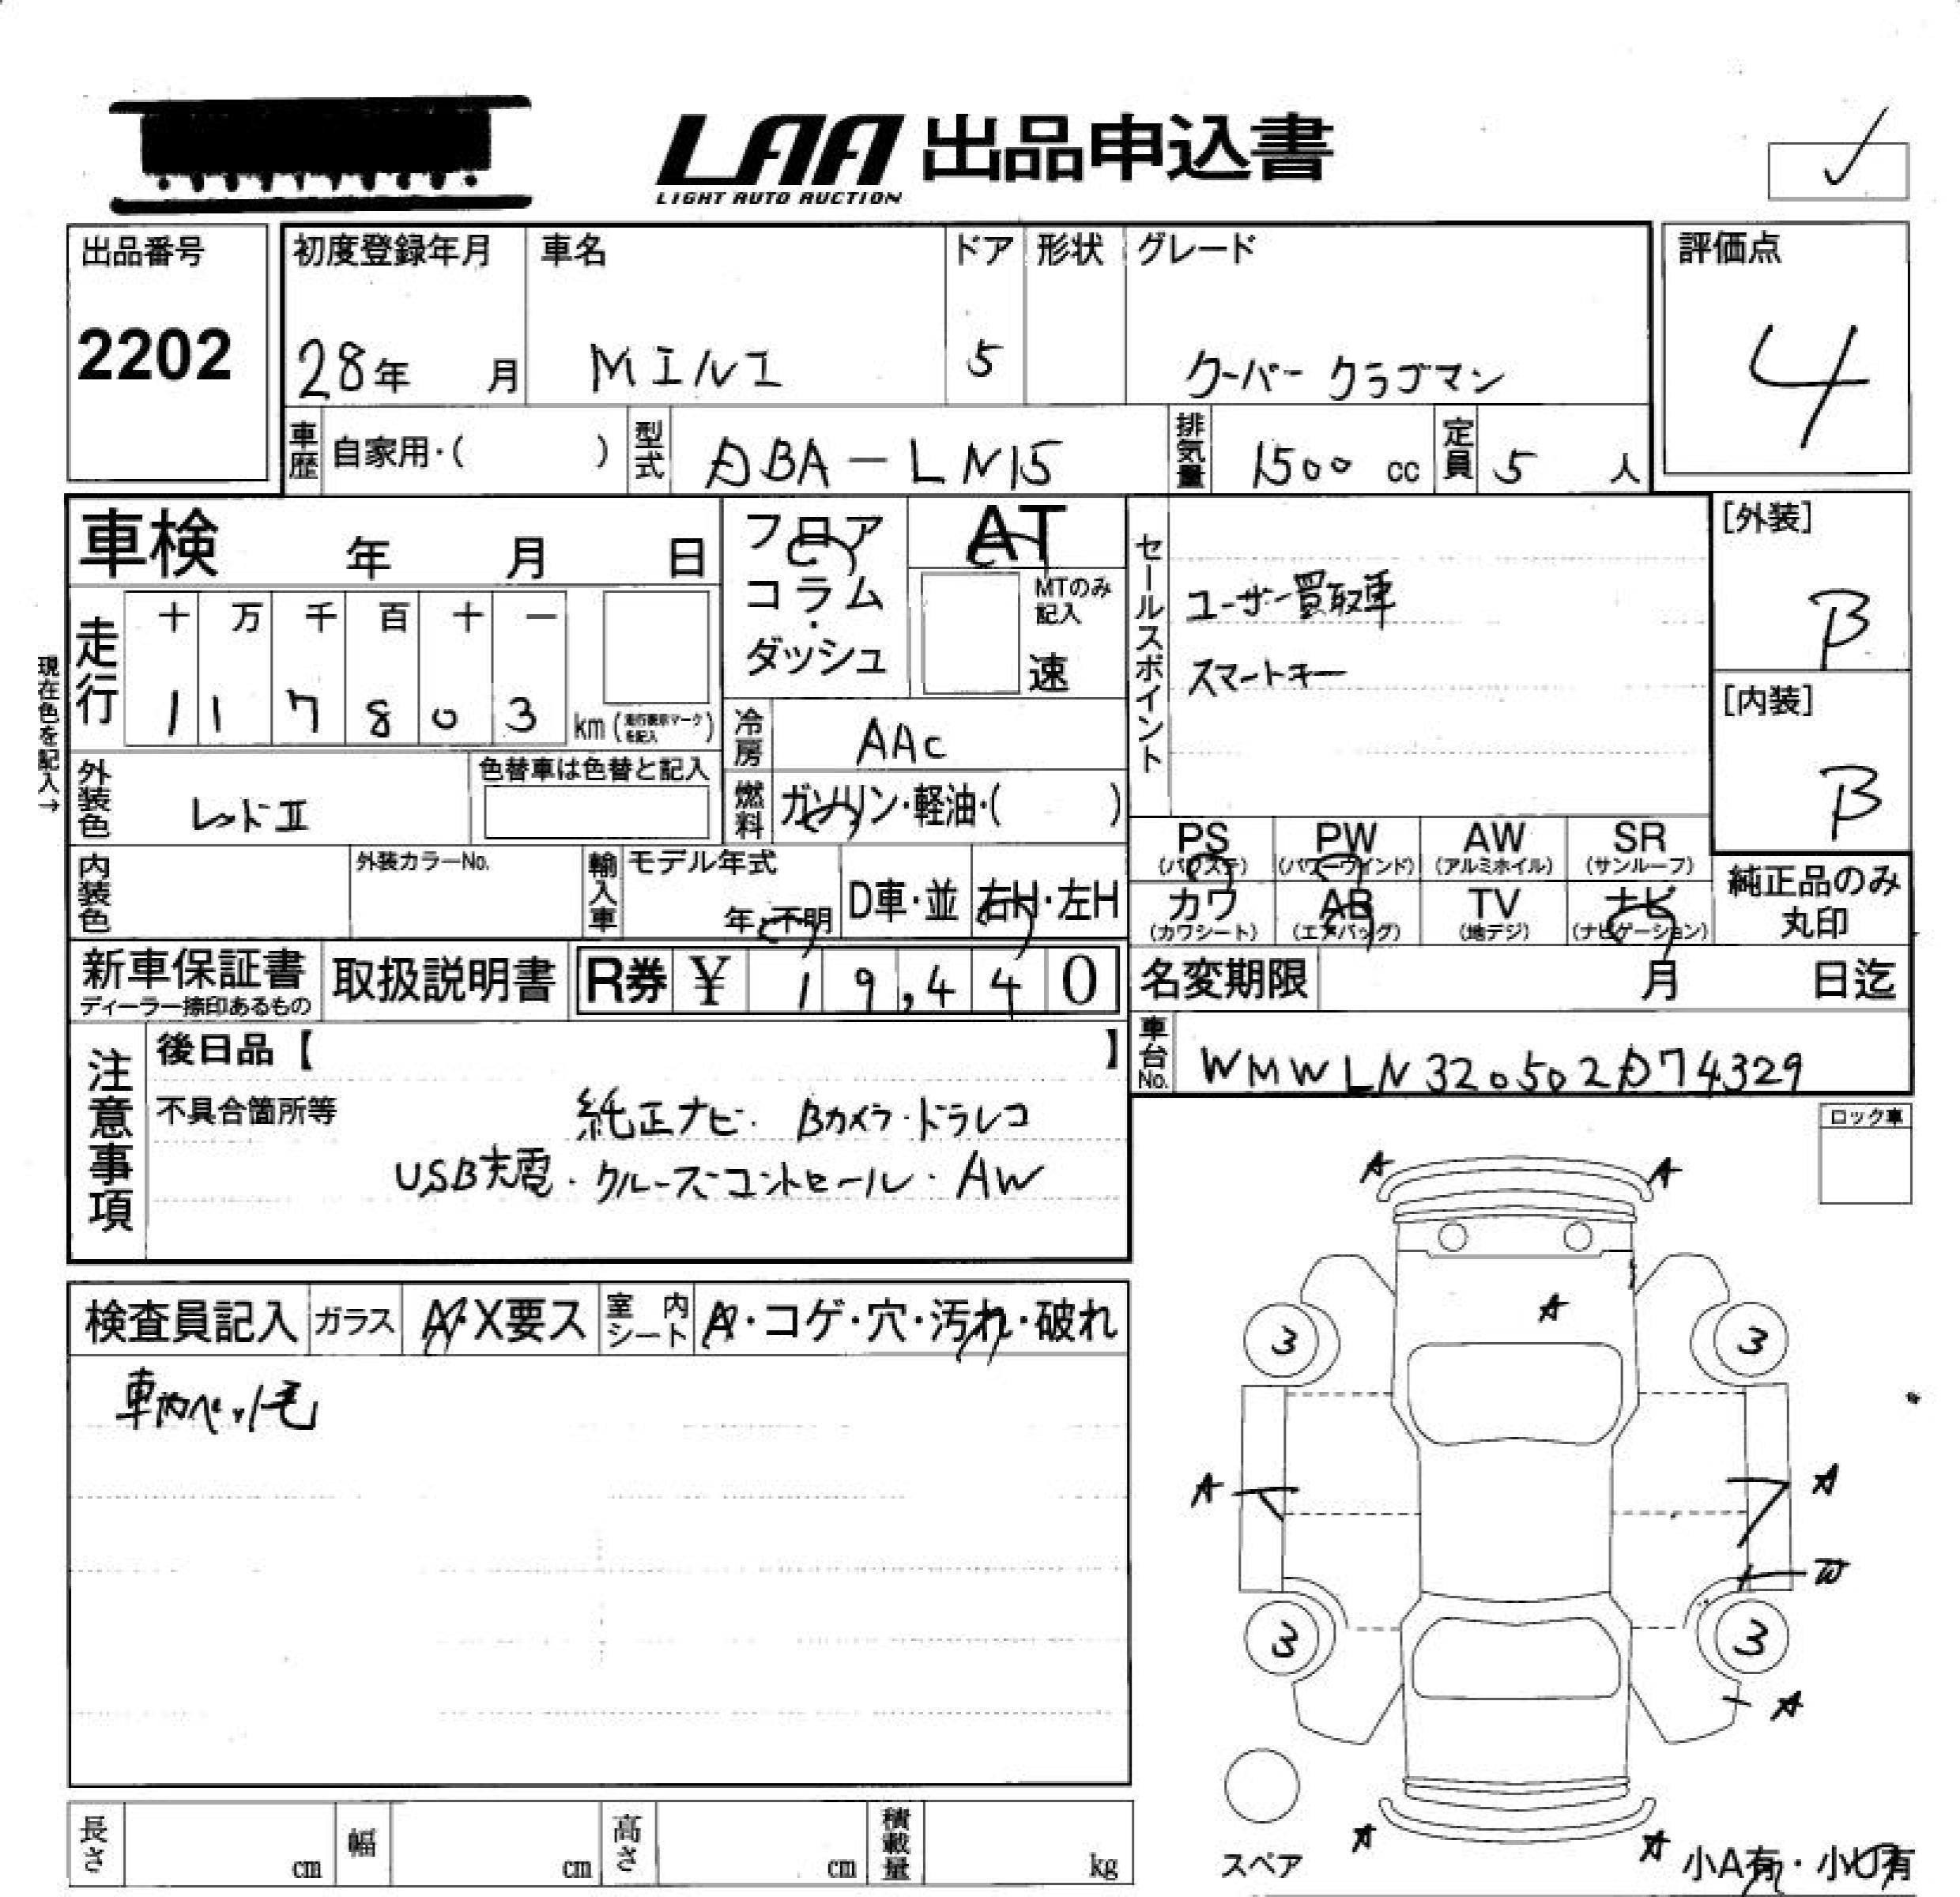 LAA 出品申込書
LIGHT AUTO AUCTION
出品番号
2202
初度登録年月
28年 月
車名
MINI
ドア
5
形状
グレード
クーパー クラブマン
評価点
4
車歴 自家用・( )
型式 DBA-LN15
排気量 1500 cc
定員 5 人
車検 年 月 日
フロア
コラム
・
ダッシュ
AT
MTのみ記入
速
セールスポイント
ユーザー買取車
スマートキー
[外装]
B
[内装]
B
現在色を記入→
走行
十 万 千 百 十 一
1 1 7 8 0 3 km (走行表示マークを記入)
冷房 AAC
外装色 レッドII
色替車は色替と記入
燃料 ガソリン・軽油・( )
PS (パワステ) PW (パワーウインド) AW (アルミホイル) SR (サンルーフ)
カワ (カワシート) AB (エアバッグ) TV (地デジ) ナビ (ナビゲーション)
純正品のみ丸印
内装色
外装カラーNo.
輸入車
モデル年式
年・不明
D車・並
右H・左H
新車保証書
ディーラー捺印あるもの
取扱説明書
R券 ¥ 19,440
名変期限 月 日迄
車台No. WMWLN320502D74329
注意事項
後日品【 】
不具合箇所等
純正ナビ・Bカメラ・ドラレコ
USB充電・クルーズコントロール・AW
ロック車
検査員記入
ガラス A・X要ス
室内シート A・コゲ・穴・汚れ・破れ
車内ペット毛
A A
A
3 3
A A
W
3 3
A
A A
スペア
小A有・小U有
長さ cm
幅 cm
高さ cm
積載量 kg